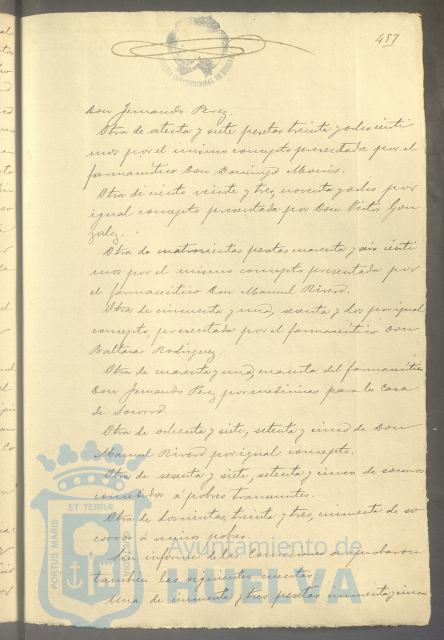 457
Don Fernando Perez.
Otra de setenta y siete pesetas treinta y ocho cénti
mos por el mismo concepto presentada por el
farmacéutico Don Domingo
Otra de ciento veinte y tres, noventa y ocho por
igual concepto presentada por Don Victor Gon
zalez.
Otra de cuatrocientas pesetas cuarenta y seis cénti
mos por el mismo concepto presentada por
el farmacéutico Don Manuel Rivero.
Otra de cincuenta y una, sesenta y dos por igual
concepto, presentada por el farmacéutico Don
Baltasar Rodriguez.
Otra de cuarenta y una, cuarenta del farmacéutico
Don Fernando Perez por medicinas para la Casa
de Socorro.
Otra de ochenta y siete, setenta y cinco de Don
Manuel Rivero por igual concepto.
Otra de sesenta y siete, setenta y cinco de socorros
concedidos á pobres transeuntes.
Otra de doscientas treinta y tres, cincuenta de so
corros á varios pobres.
Sin informe de las Comisiones se aprobaron
tambien las siguientes cuentas.
Una de cincuenta y tres pesetas cincuenta y cinco
PORTUS MARIS ET TERRÆ
Ayuntamiento de
HUELVA